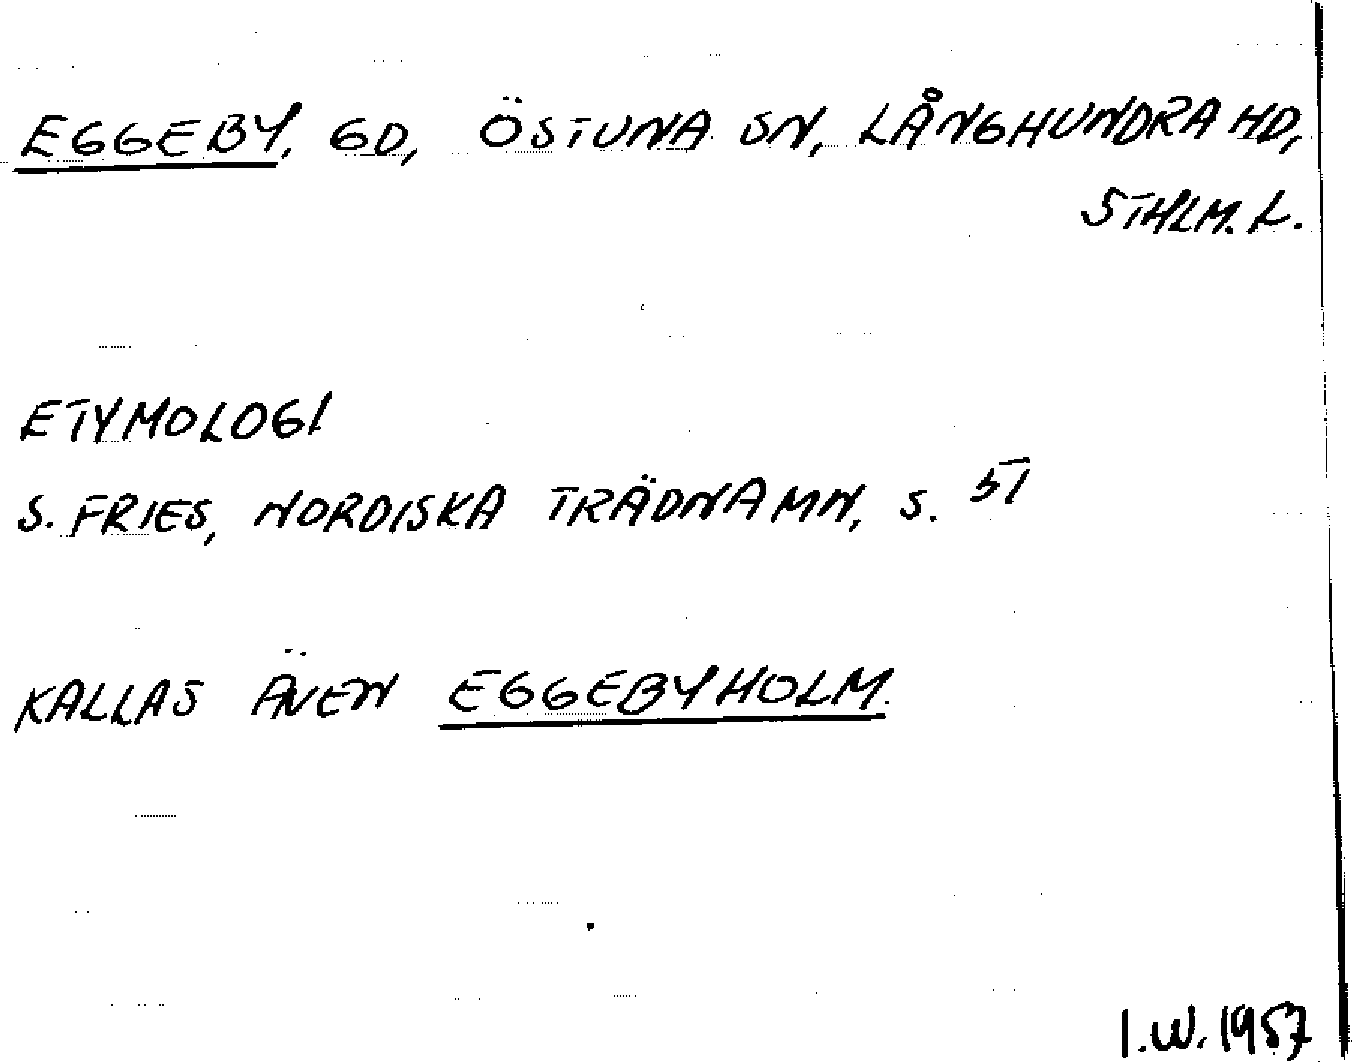 EGGEBY, GD, ÖSTUNA SN, LÅNGHUNDRA HD,
STHLM. L.
ETYMOLOGI
S. FRIES, NORDISKA TRÄDNAMN, S. 51
KALLAS ÄVEN EGGEBYHOLM.
I.W. 1957